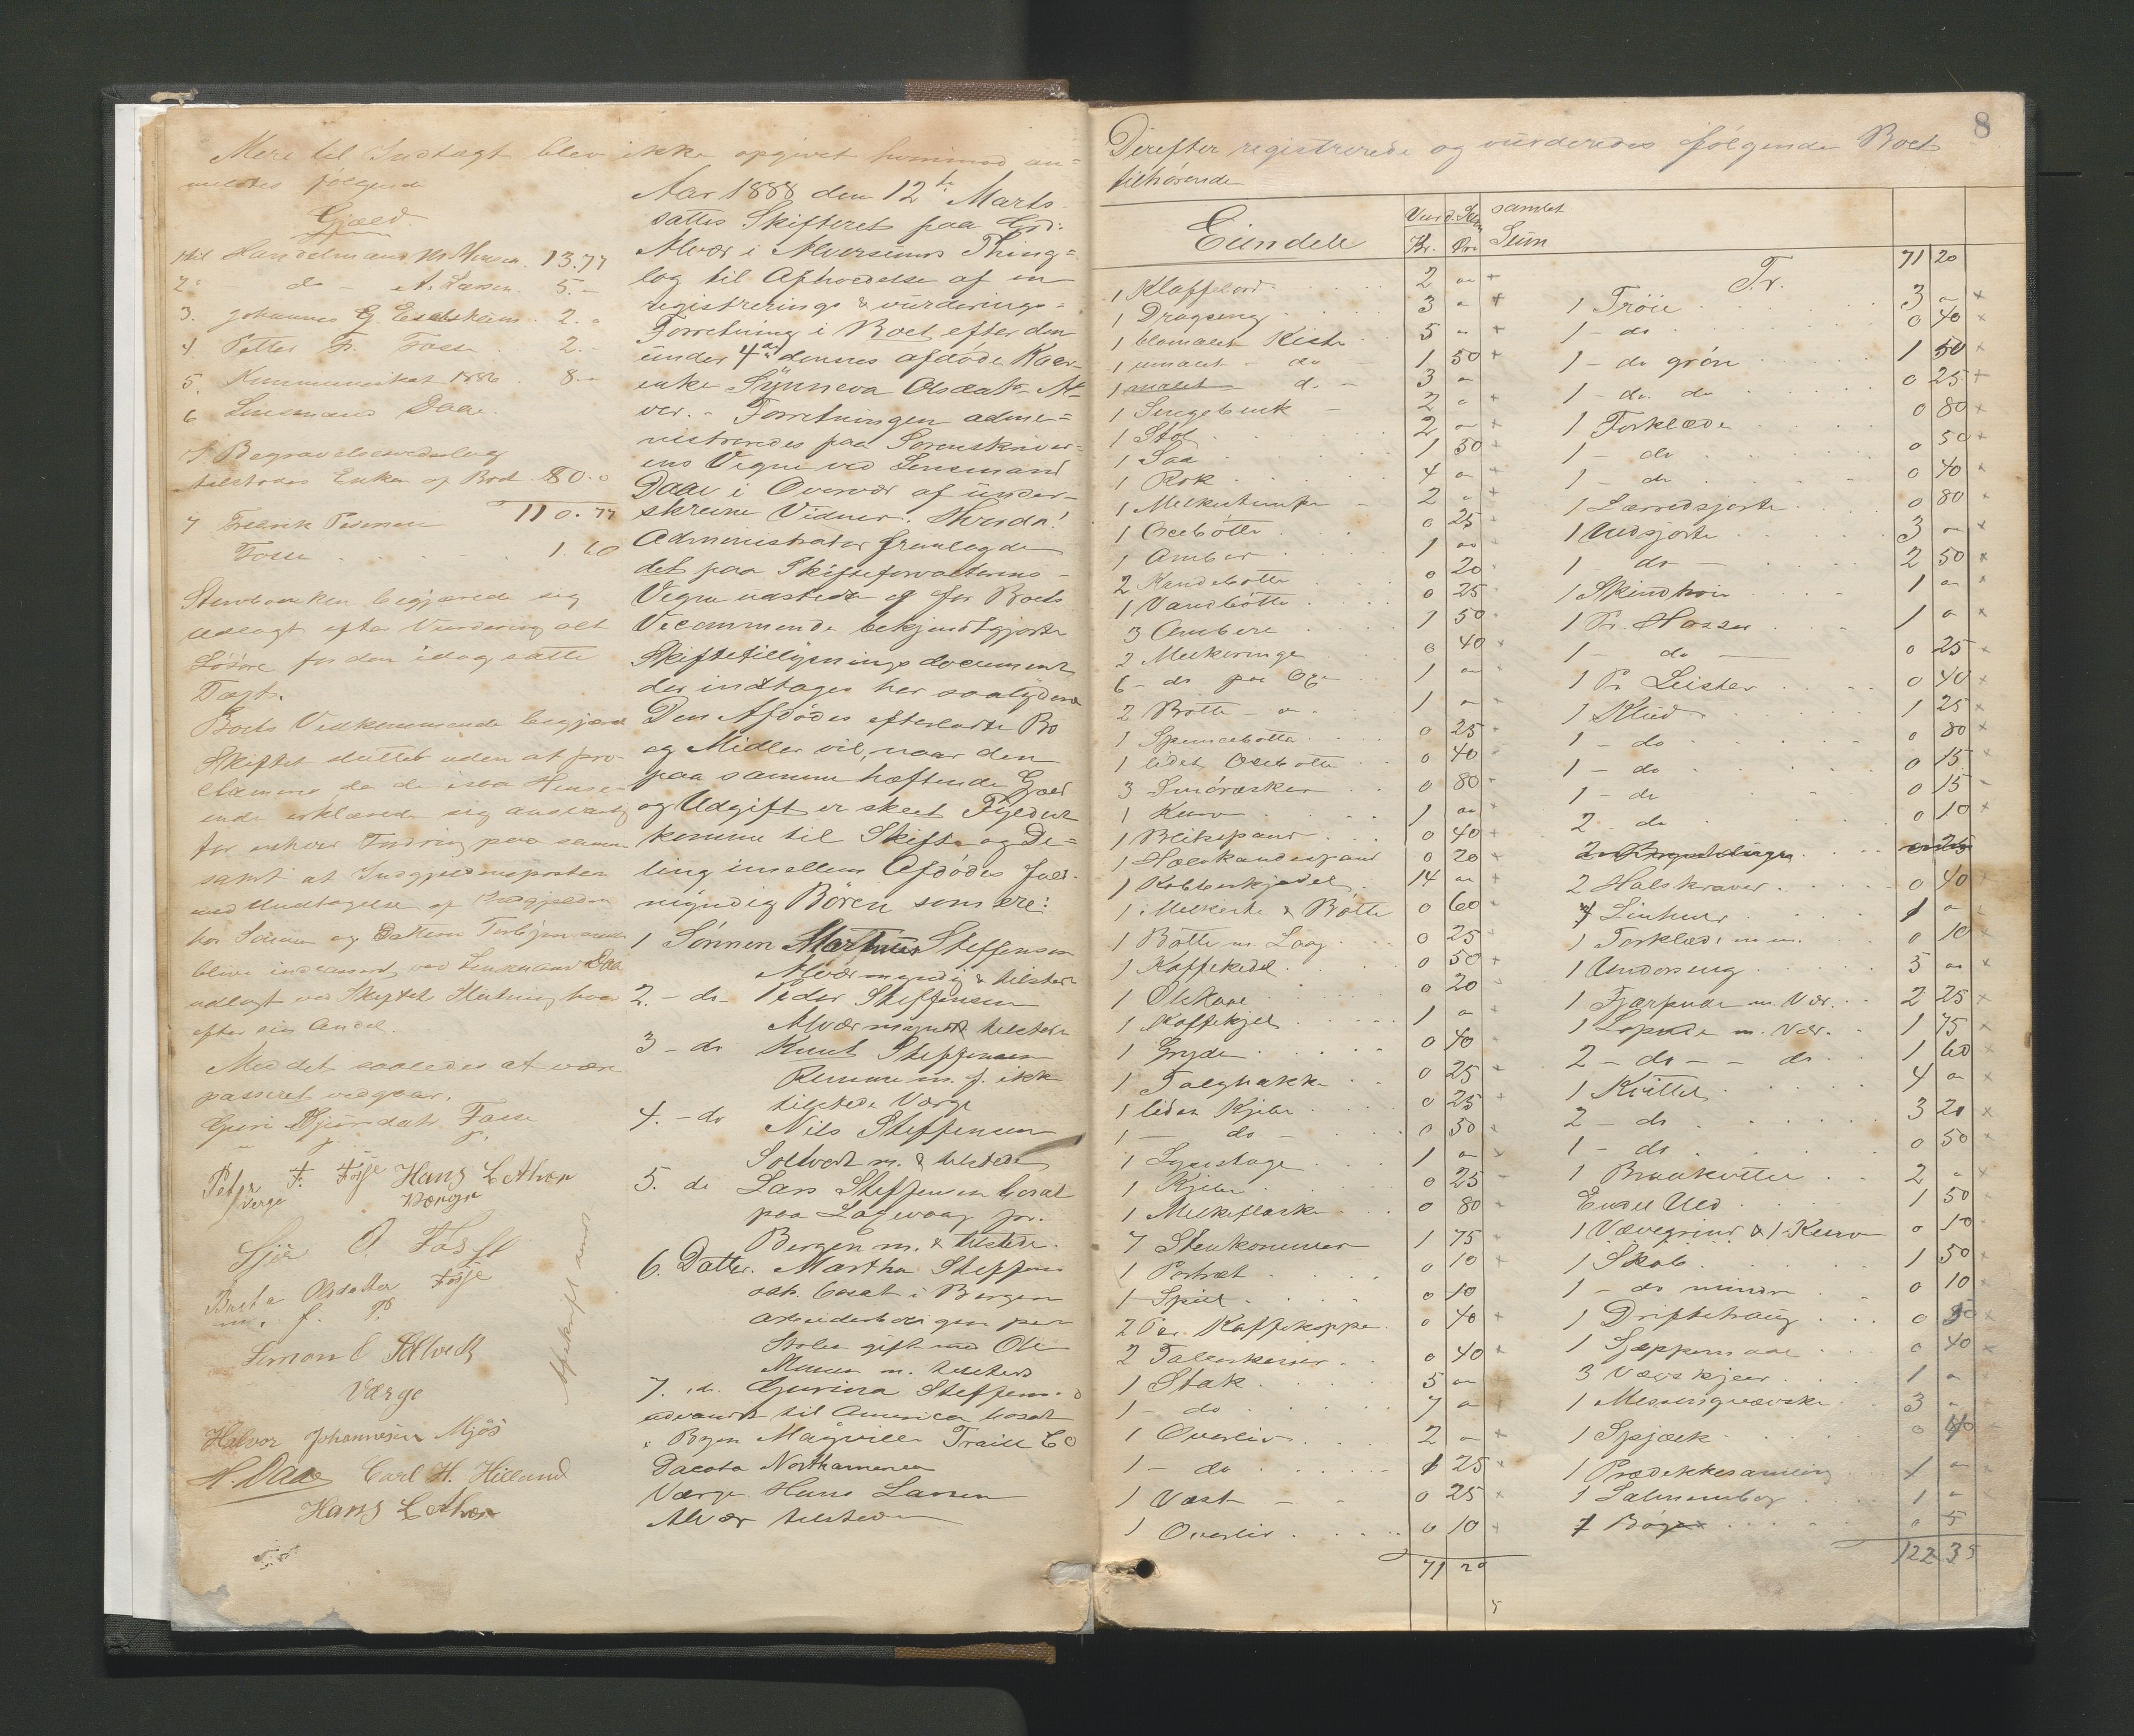 Mere til Indtægt blev ikke opgivet hvorimod an=
meldtes følgende
Gjæld
1 til Handelsmand M. Monsen 13.77
2. do - A. Larsen 5.-
3. Johannes G. Eselsheim 2.-
4. Petter Fr. Fosse 2.-
5. Kommuneskat 1886 8.-
6 Lensmand Daae
Begravelsesvederlag
tilstodes Enken af Boet 80.0
110.77
7 Fredrik Pedersen
Fosse 1.60
Stervboenken begjærede sig
udlagt efter Vurdering alt
Løsøre for den idag satte
Taxt.
Boets Vedkommende begjæred
Skiftet sluttet uden at pro-
clameres da de
ende erklærede sig ansvarlig
for enhver Fordring paa samme
samt at Indgjeldensposter
med Undtagelse af Indgjelden
hos Sønnen og Datteren Torbjør
blive indcasseret ved Lensmand Daa
udlagt ved Skiftets Slutning hver
efter sin Andel.
Med det saaledes at være
passeret vedgaar.
Guri Gjürsdatr Fosse
Petr F. Fosse Hans L Alver
Verge Værge
Sjur O. Fosse
Brita Olsdatter Fosse
m. f. P.
Simon O Solvedt
Værge
Halvor Johannesen Mjøs
H. Daae Carl H. Hilland
Hans L Alver
Afskrift sendt
Aar 1888 den 12te Marts
sattes Skifteret paa Grd:
Alvær i Alversunds Thing=
lag til Afholdelse af en
registrerings & vurderings=
Forretning i Boet efter den
under 4de dennes afdøde Kaar=
enke Synneva Olsdatr Al=
ver. - Forretningen admi=
nistreredes paa Sorenskriver=
ens Vegne ved Lensmand
Daae i Oversvær af under=
skrevne Vidner. Hvorda!
Administrator fremlagde
det paa Skifteforvalterens -
Vegne udstedte og for Boets
Vecommende bekjendtgjorte
Skiftetillysningsdocument
der indtages her saalydene
Den Afdødes efterladte Bo
og Midler vil, naar den
paa samme hæftende Gjæld
og Udgift er skeet Fyldest
komme til Skifte og De=
ling imellem Afdødes fuld=
myndig Børen som ere:
1 Sønnen Martinus Steffensen
Alvær myndig & tilstede
2. - do - Peder Steffensen
Alvær myndr tilstede
3 - do Knut Steffensen
Remme m. f. ikke
tilstede Værge
4. - do Nils Steffensen
Soltvedt m. & tilstede
5. do Lars Steffensen bosat
paa Laxevaag pr.
Bergen m. & tilstede.
6. Datter. Martha Steffens
datr. bosat i Bergen
Arbeiderboligen paa
Stolen gift med Ole
Monsen m. tilstede
7. do. Gurina Steffensd
udvandr til America bosat
i Byen Mayville Traill Co
Dacota Northamerica
Værge Hans Larsen
Alvær tilstede
8
Derefter registrerede og vurderedes følgende Boet
tilhørende
Eiendele Vurd. Sum samlet
Kr. Øre Sum
1 Klaffebord 2 "
1 Dragseng 3 "
1 blomalet Kiste 5 "
1 umalet - do 1 50
1 malet do - 3 "
1 Sengebenk - 2 "
1 Stol 2 "
1 Saa 1 50
1 Rok 4 "
1 Melkestampe 2 "
1 Osebøtte 0 25
1 Amber 1 "
2 Handebøtte 0 20
1 Vandbøtte 0 25
3 Ambere 1 50
2 Melkeringe 0 40
6 - do paa 1 "
2 Bøtte 1 "
1 Spenebøtte 0 25
1 lidet Osebøtte 0 40
3 Smøræsker 0 80
1 Kurv 1 "
1 Blikspand 0 40
1 0 20
1 Kobberkjedel 14 "
1 Melkesie & Bøtte 0 60
1 Bøtte m. Laag 0 25
1 Kaffekedel 0 50
1 Ølskaae 0 20
1 Kaffekjel 1 "
1 Gryde 0 40
1 Talghakke 0 25
1 liden Kjeler 0 25
1 - do - 0 50
1 Lysestage 1 "
1 Kjeler 0 25
1 Melkeflaske 0 80
7 Stenkommer 1 75
1 Portræt 0 10
1 Speil 0 10
2 Par Kaffekoppe 0 40
2 Talerkener 0 40
1 Stak 5 "
1 - do 7 "
1 Overliv 2 "
1 - do 1 25
1 Væst 0 25
1 Overliv 0 10
71 20
Tr. 71 20
1 Trøie 3 "
1 - do 0 40
1 - do grøn 1 50
1 - do do 0 25
1 Forklæde 0 80
1 - do 0 50
1 - do 0 40
1 Lærredsjorte 0 80
1 Uldsjorte 3 "
1 do - 2 50
1 Skindtrøie 1 "
1 Pr. Hosser 1 "
1 - do - 0 25
1 Pr Leister 0 40
1 Klud 1 25
1 - do 0 80
1 - do 0 15
1 - do 0 15
2 do 0 10
2 Halskraver 0 40
7 Linhuer 1 "
1 Forklæde m m. 0 10
1 Underseng 5 "
1 Fjærpude m. Vær. 2 25
1 Lopude m. Vær. 1 75
2 - do - - do 1 60
1 Kvittel 4 "
2 - do 3 20
1 - do 0 50
1 Braakvittel 2 "
Endel Uld 1 50
1 Vævegrind & 1 Kurv 0 10
1 Skab 1 50
1 - do mindre 0 10
1 Driftetraug 0 50
1 Sjæppemaal 0 40
3 Vævskjeer 1 "
1 3 "
1 Spjælk 0 40
1 Prædikkesamling 1 "
1 Salmemebog 1 "
7 Bøger 0 5
122 35